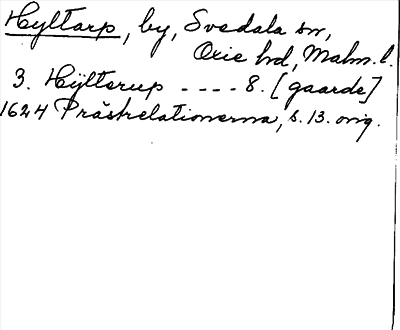 Hyltarp, by, Svedala sn,
Oxie hd, Malm. l.
3. Hÿlterup ---- 8. [gaarde]
1624 Prästrelationerna, s. 13. orig.